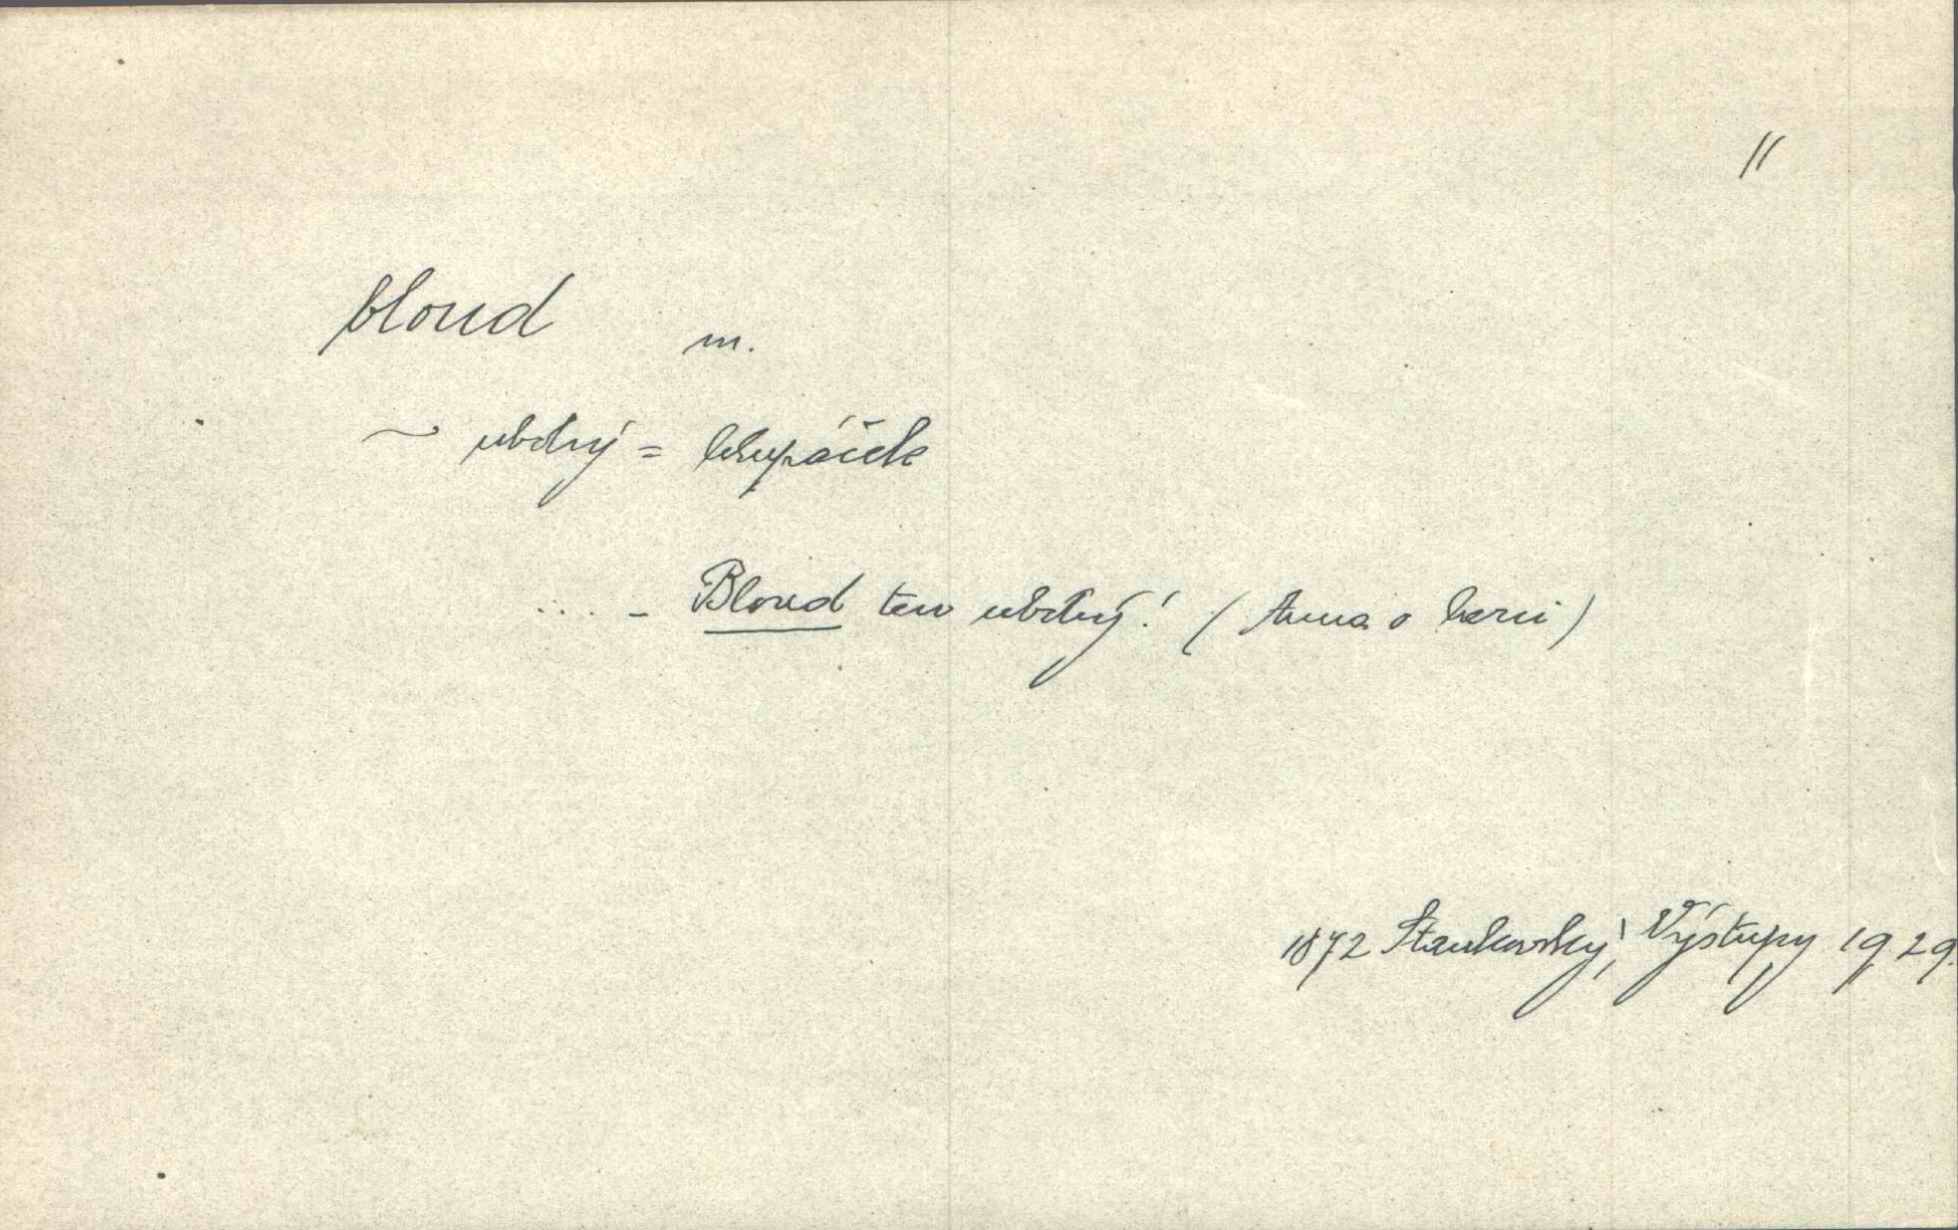 //
bloud m.
~ ubohý = hlupáček
.... - Bloud ten ubohý! (Anna o herci)
1872 Stankovský, Výstupy 19, 29.